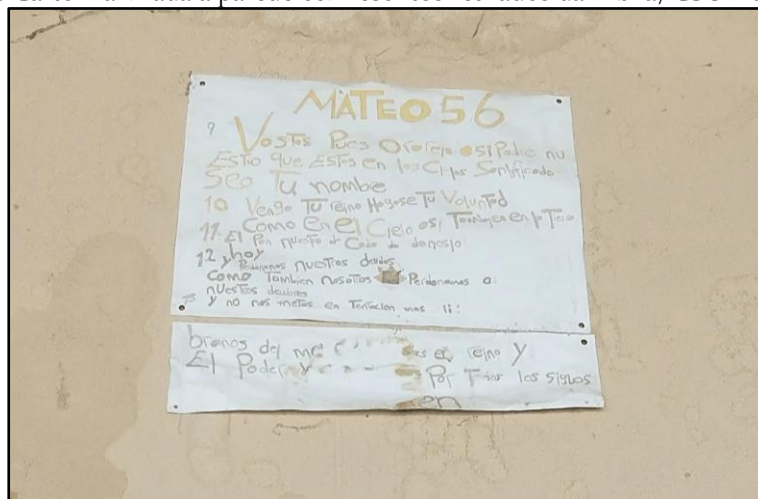 MATEO 56
9 Vostros Pues Orareis asi Padre nu
Estro que Estas en los Cielos Santificado
Sea Tu nombre
10 Venga Tu reino Hagase Tu Voluntad
Como en el Cielo asi Tambien en la Tierra
11 El Pan nuestro de Cada dia danoslo
12 y hoy
Perdonanos nuestras deudas
Como Tambien nosotros Perdonamos a
nuestros deudores
Y no nos metas en Tentacion mas li:
branos del m es el reino y
El Poder y Por T los siglos
en